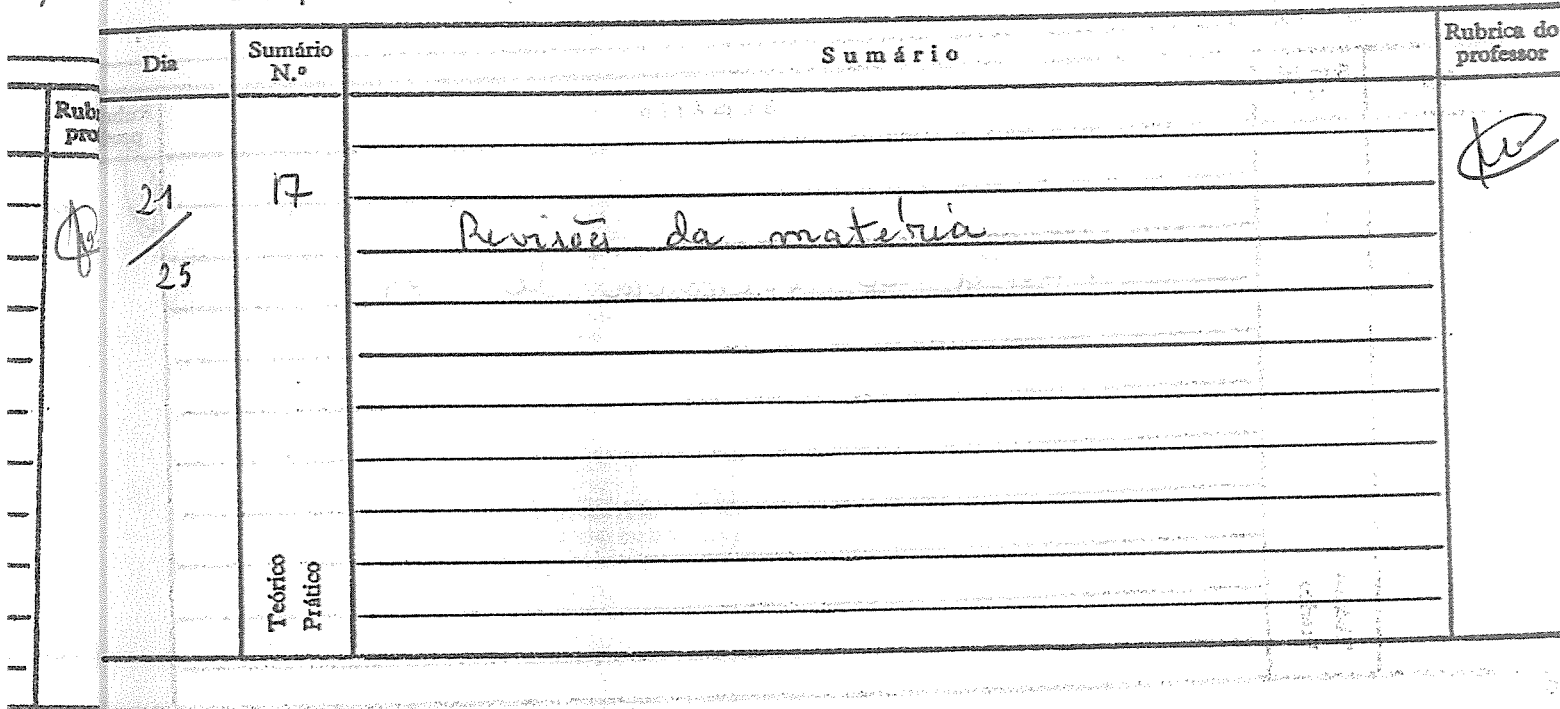 Dia
Sumário
N.º
Sumário
Rubrica do
professor
Rub
pro
21
/
25
17
Revisões da matéria
Teórico
Prático